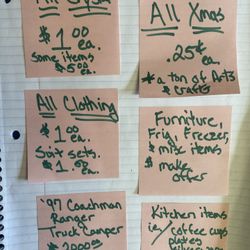 All
$1.00
ea.
Some items
$5.00
ea.
All Xmas
.25¢
ea.
*a ton of Arts
& Crafts
All Clothing
$1.00
ea.
Suit sets.
ea.
Furniture,
Frig, Freezer,
& misc items
$ make
offer
'97 Coachman
Ranger
Truck Camper
$2000.00
Kitchen items
ie/ coffee cups
plates